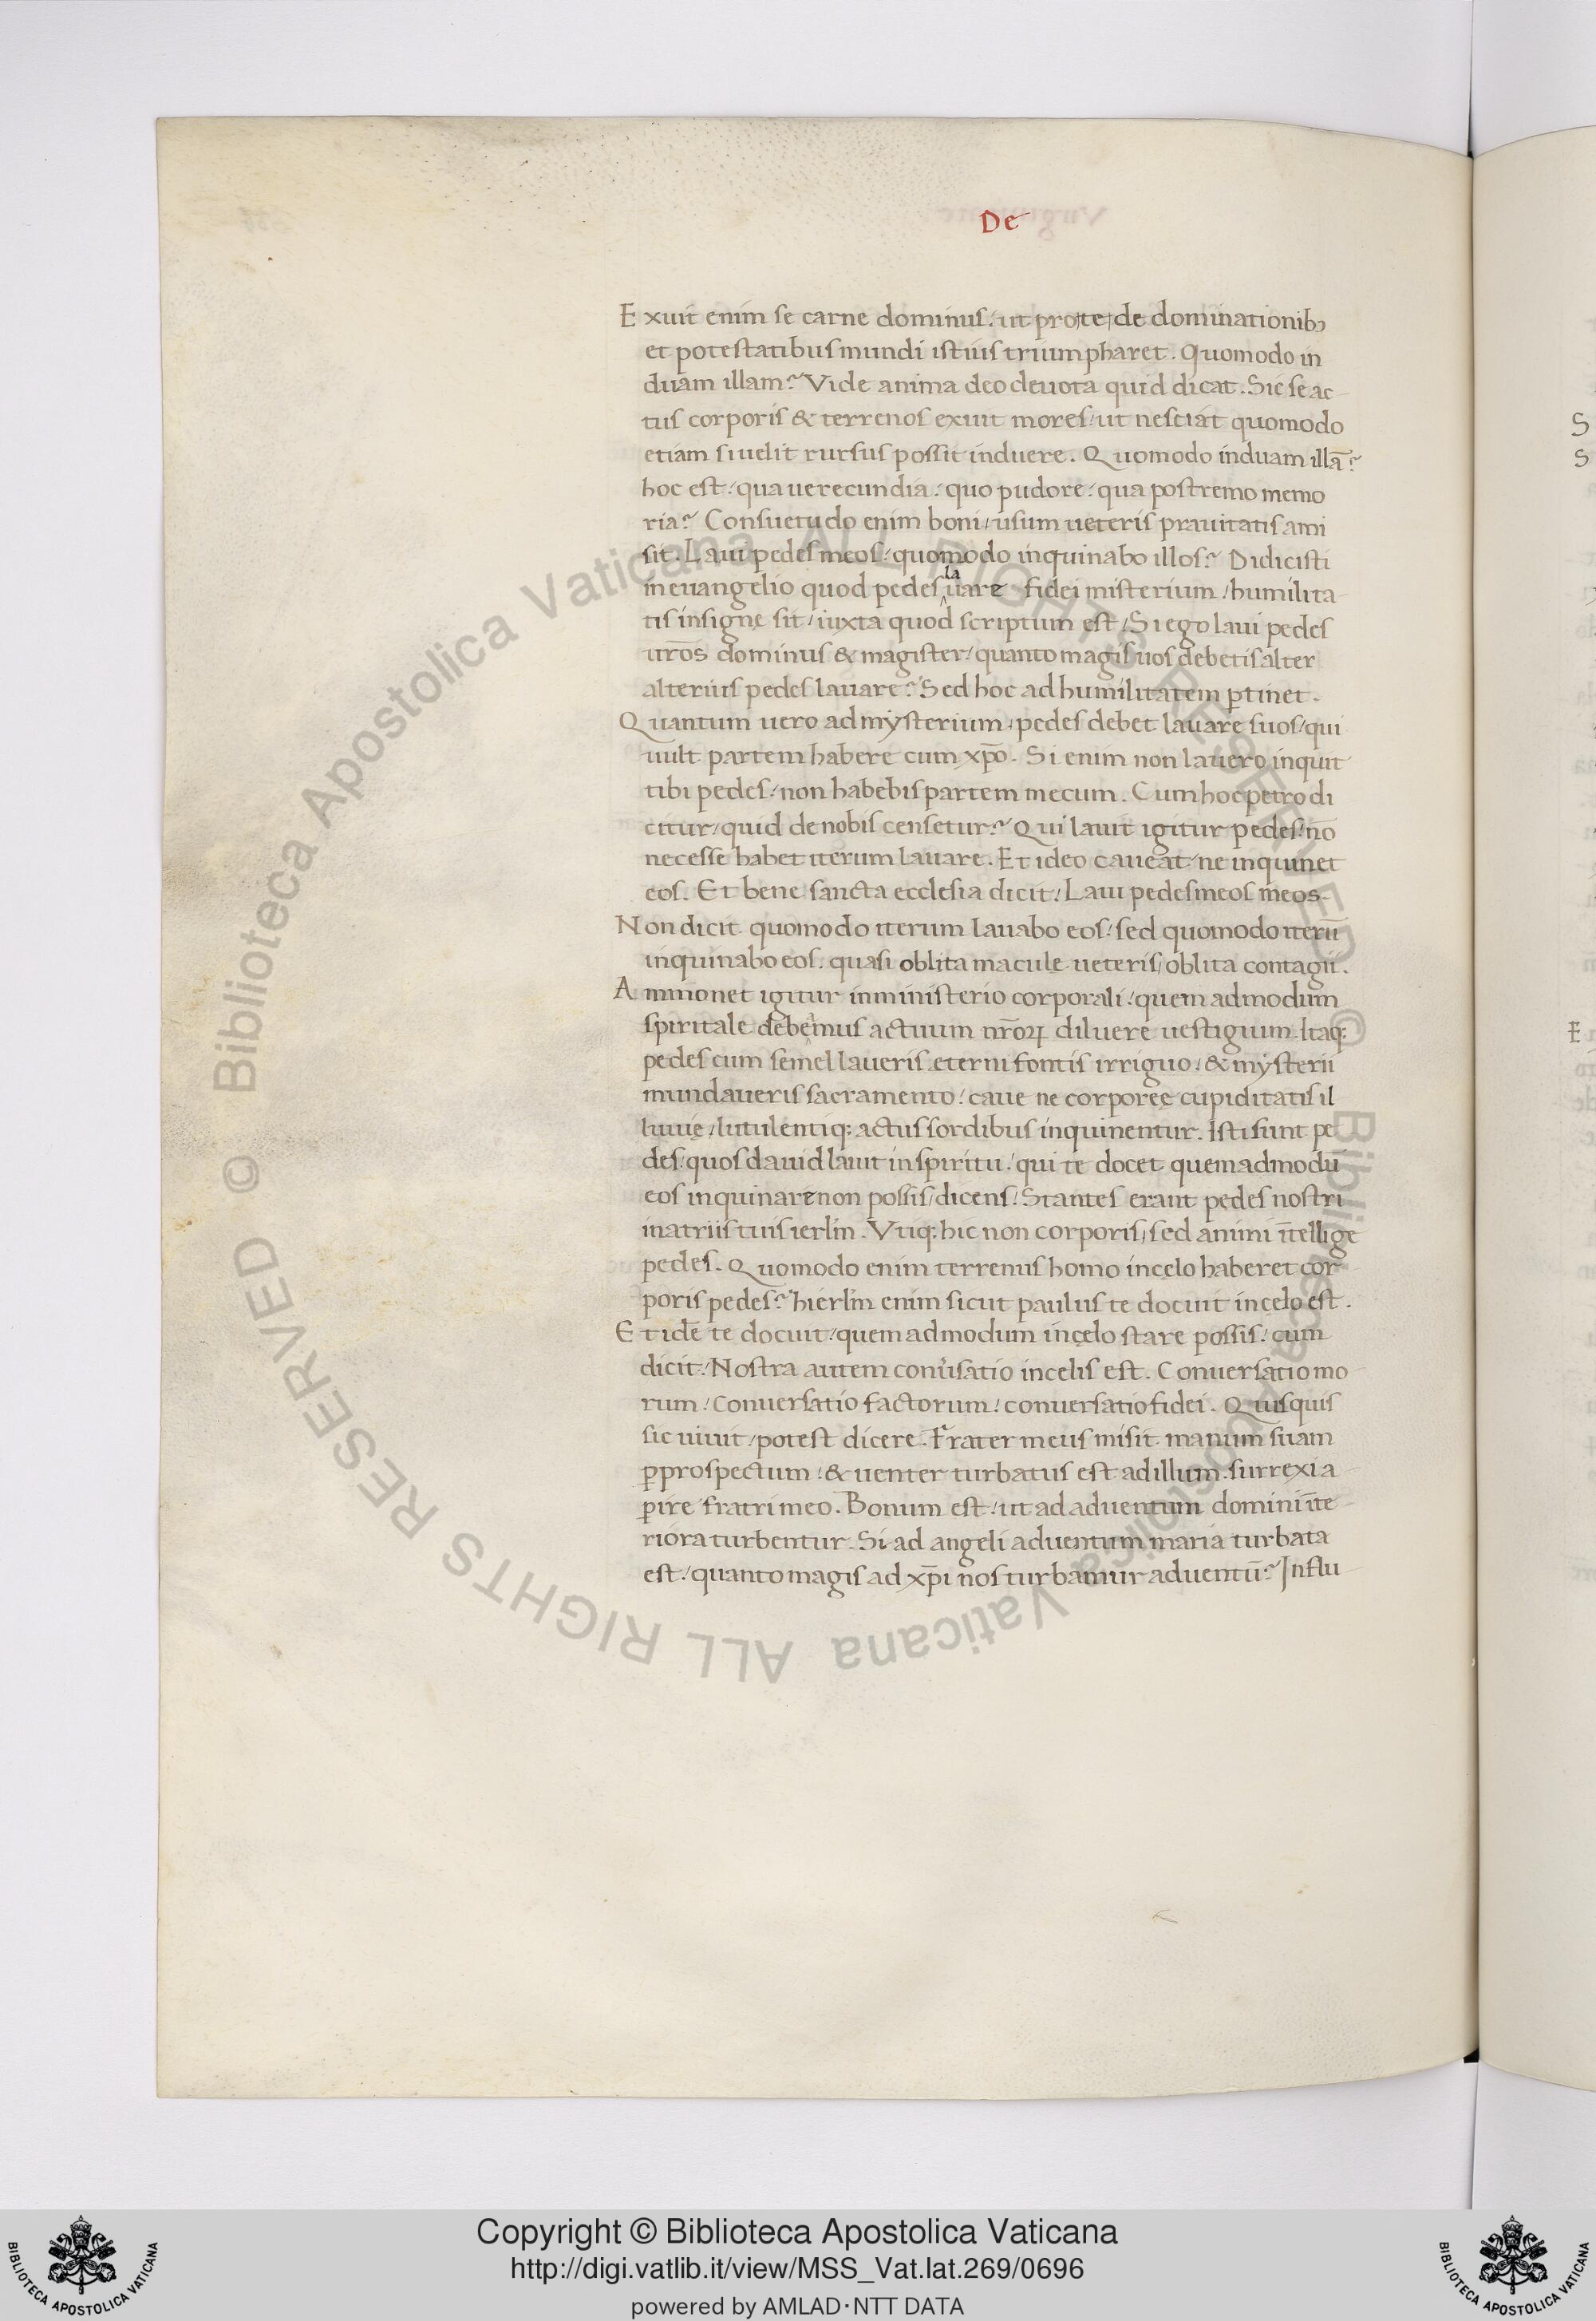 De
Exuit enim se carne dominus / ut pro te de dominationibꝫ
et potestatibus mundi istius triumpharet. Quomodo in
duam illam? Vide anima deo deuota quid dicat. Sic se ac-
tus corporis & terrenos exuit mores / ut nesciat quomodo
etiam si uelit rursus possit induere. Quomodo induam illā?
hoc est / qua uerecundia / quo pudore / qua postremo memo
ria? Consuetudo enim boni / usum ueteris prauitatis ami
sit. Laui pedes meos / quomodo inquinabo illos? Didicisti
in euangelio quod pedes lauare fidei misterium / humilita-
tis insigne sit / iuxta quod scriptum est / Si ego laui pedes
ur̄os dominus & magister / quanto magis uos debetis alter
alterius pedes lauare? Sed hoc ad humilitatem ꝑtinet.
Quantum uero ad mysterium / pedes debet lauare suos / qui
uult partem habere cum xp̄o. Si enim non lauero inquit
tibi pedes / non habebis partem mecum. Cum hoc petro di
citur / quid de nobis censetur? Qui lauit igitur pedes / nō
necesse habet iterum lauare. Et ideo caueat / ne inquinet
eos. Et bene sancta ecclesia dicit / Laui pedes meos meos.
Non dicit quomodo iterum lauabo eos / sed quomodo iterū
inquinabo eos. quasi oblita macule ueteris / oblita contagii.
Ammonet igitur in ministerio corporali / quem admodum
spiritale debemus actuum nr̄oꝝ diluere uestigium. Itaq:
pedes cum semel laueris eterni fontis irriguo / & mysterii
mundaueris sacramento / caue ne corporeę cupiditatis il
luuię / lutulentiq: actus sordibus inquinentur. Isti sunt pe
des / quos dauid lauit in spiritu / qui te docet quemadmodū
eos inquinare non possis / dicens / Stantes erant pedes nostri
in atriis tuis ierlm̄. Vtiq: hic non corporis / sed animi ītellige
pedes. Quomodo enim terrenus homo in cęlo haberet cor
poris pedes? hierlm̄ enim sicut paulus te docuit in cęlo est.
Et idē te docuit / quem admodum in cęlo stare possis / cum
dicit / Nostra autem conuersatio in celis est. Conuersatio mo-
rum / Conuersatio factorum / conuersatio fidei. Quisquis
sic uiuit / potest dicere. Frater meus misit manum suam
ꝑ prospectum / & uenter turbatus est ad illum. surrexi a
perire fratri meo. Bonum est / ut ad aduentum domini īte-
riora turbentur. Si ad angeli aduentum maria turbata
est / quanto magis ad xp̄i nos turbamur aduentū? Influ
S
S
E
© Biblioteca Apostolica Vaticana ALL RIGHTS RESERVED © Biblioteca Apostolica Vaticana ALL RIGHTS RESERVED
Copyright © Biblioteca Apostolica Vaticana
http://digi.vatlib.it/view/MSS_Vat.lat.269/0696
powered by AMLAD·NTT DATA
BIBLIOTECA APOSTOLICA VATICANA
BIBLIOTECA APOSTOLICA VATICANA